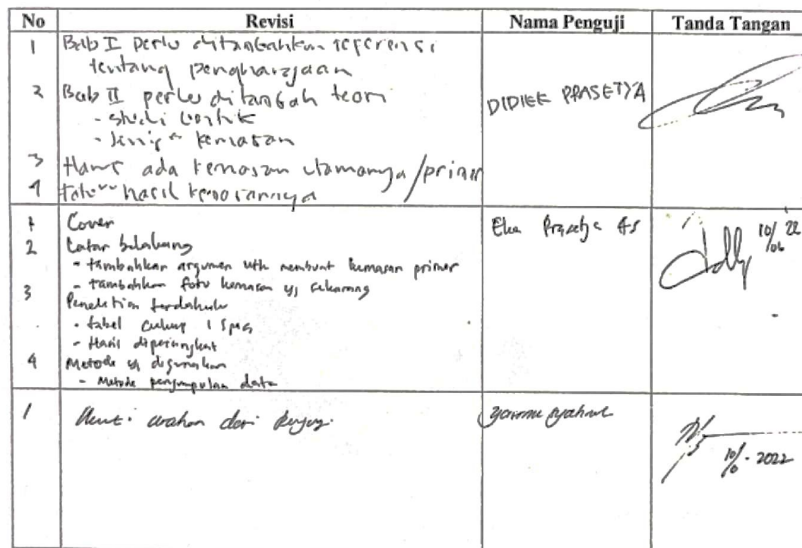 No Revisi Nama Penguji Tanda Tangan
1 Bab I perlu ditambahkan referensi
tentang
2 Bab II perlu ditambah teori
- studi
- jenis" kemasan
DIDIEK PRASETYA
3 Harus ada kemasan utamanya/primer
4 hasil
1 Cover
Eka Prasetya
2 Latar belakang
- tambahkan argumen utk membuat kemasan primer
- tambahkan foto kemasan yg sekarang
3 Penelitian terdahulu
- tabel cukup 1 spasi
- Hasil dipersingkat
4 Metode yg digunakan
- Metode pengumpulan data
10/06 22
1 arahan dari
2022